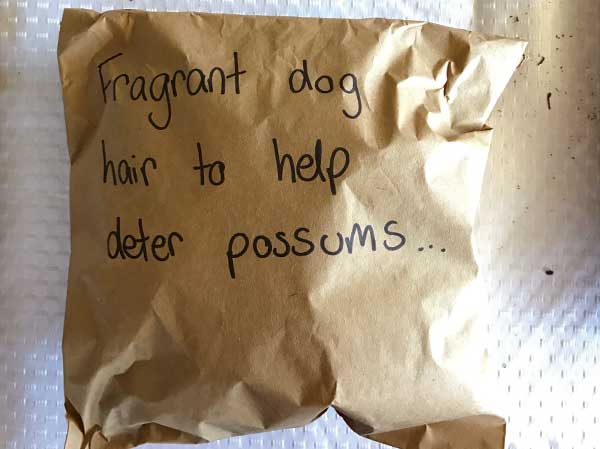 Fragrant dog
hair to help
deter possums...